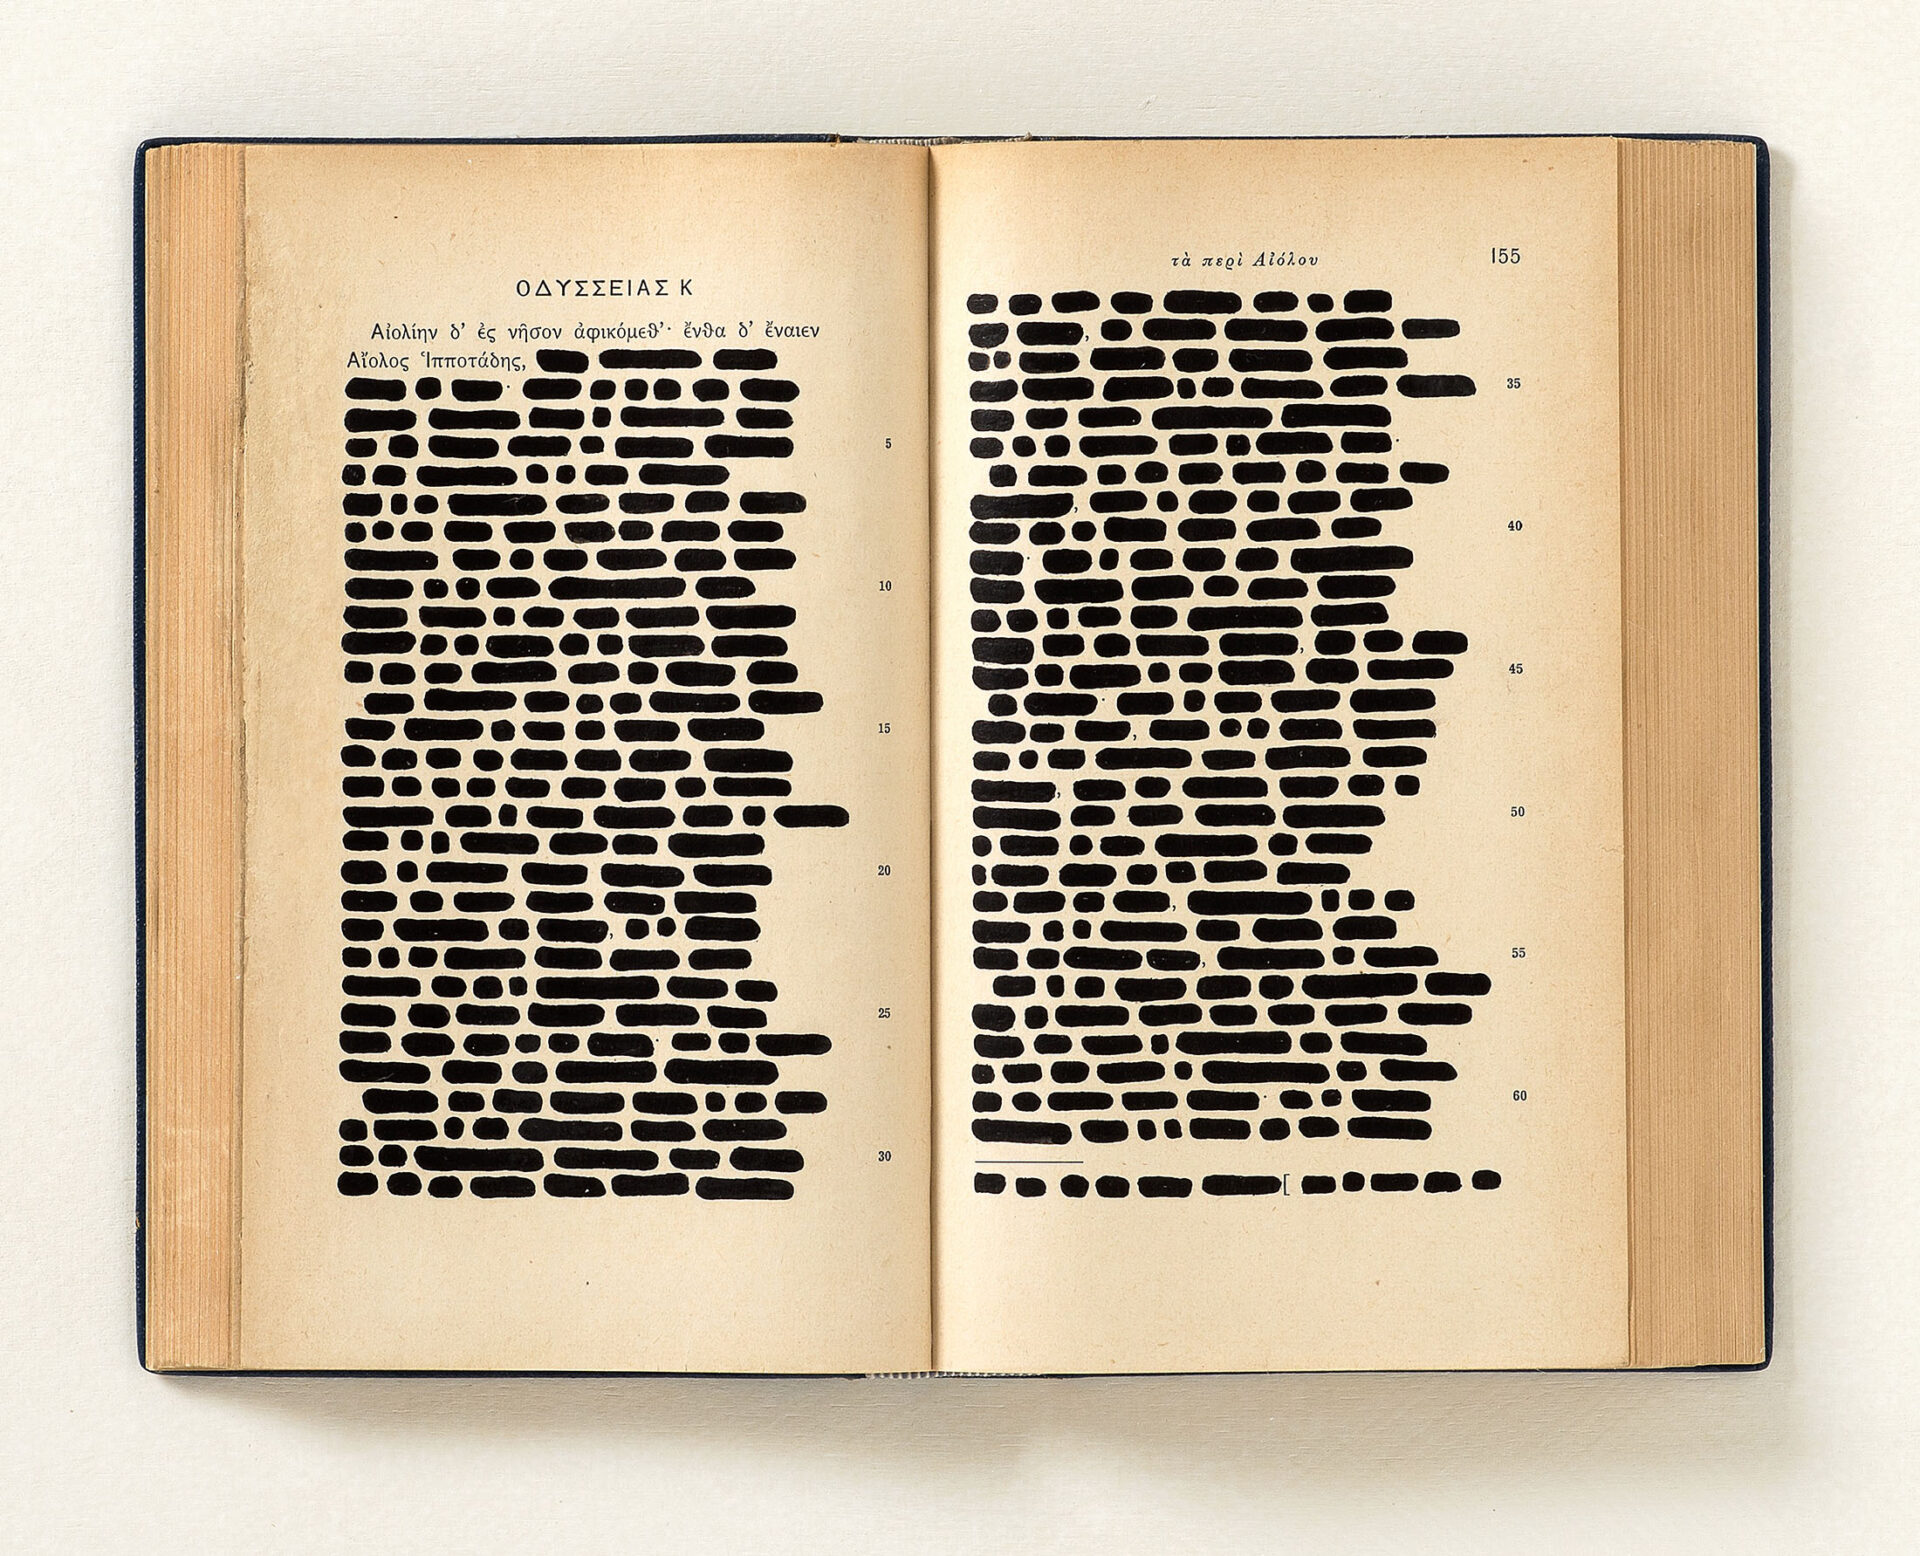 ΟΔΥΣΣΕΙΑΣ Κ
Αἰολίην δ’ ἐς νῆσον ἀφικόμεθ’· ἔνθα δ’ ἔναιεν
Αἴολος Ἱπποτάδης,
5
10
15
20
25
30
τὰ περὶ Αἰόλου 155
35
40
45
50
55
60
[